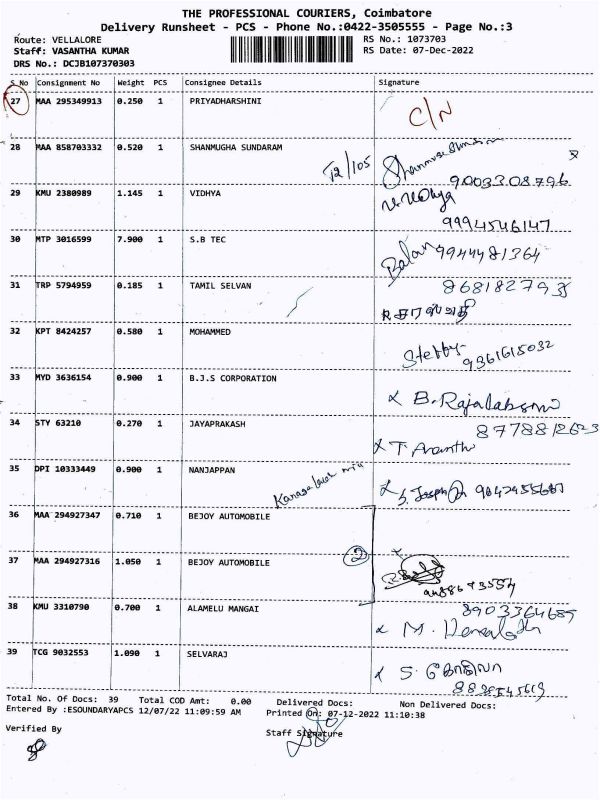 THE PROFESSIONAL COURIERS, Coimbatore
Delivery Runsheet - PCS - Phone No.:0422-3505555 - Page No.:3
Route: VELLALORE
RS No.: 1073703
Staff: VASANTHA KUMAR
RS Date: 07-Dec-2022
DRS No.: DCJB107370303
S No Consignment No Weight PCS Consignee Details Signature
27 MAA 295349913 0.250 1 PRIYADHARSHINI C/N
28 MAA 858703332 0.520 1 SHANMUGHA SUNDARAM T2/105
9003308796
29 KMU 2380989 1.145 1 VIDHYA V.Vidhya
9994546147
30 MTP 3016599 7.900 1 S.B TEC Balan 9944481364
31 TRP 5794959 0.185 1 TAMIL SELVAN
32 KPT 8424257 0.580 1 MOHAMMED 9361615032
33 MYD 3636154 0.900 1 B.J.S CORPORATION
34 STY 63210 0.270 1 JAYAPRAKASH 8778812623
35 DPI 10333449 0.900 1 NANJAPPAN
36 MAA 294927347 0.710 1 BEJOY AUTOMOBILE
37 MAA 294927316 1.050 1 BEJOY AUTOMOBILE 2
38 KMU 3310790 0.700 1 ALAMELU MANGAI
39 TCG 9032553 1.090 1 SELVARAJ S. கோகிலா
Total No. Of Docs: 39 Total COD Amt: 0.00 Delivered Docs: Non Delivered Docs:
Entered By :ESOUNDARYAPCS 12/07/22 11:09:59 AM Printed On: 07-12-2022 11:10:38
Verified By
Staff Signature